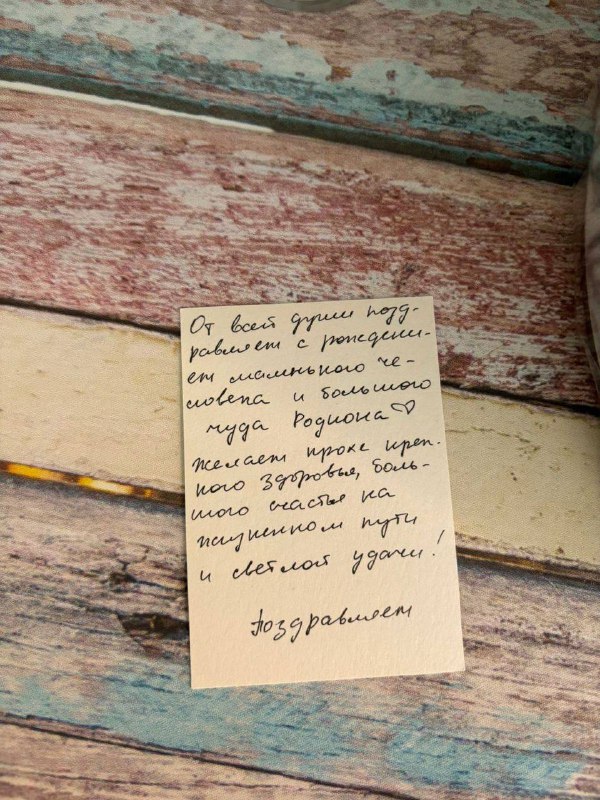 От всей души позд-
равляем с рождени-
ем маленького че-
ловека и большого
чуда Родиона ♡
Желаем крохе креп-
кого здоровья, боль-
шого счастья на
жизненном пути
и светлой удачи!
Поздравляем